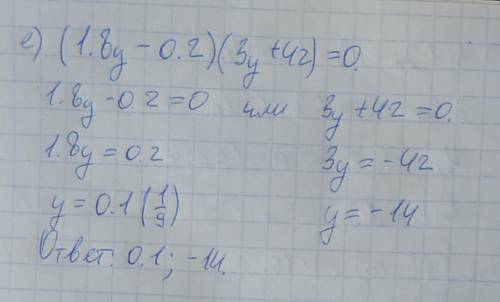 е) (1.8y - 0.2)(3y + 42) = 0.
1.8y - 0.2 = 0 или 3y + 42 = 0.
1.8y = 0.2 3y = -42
y = 0.1 (1/9) y = -14
Ответ: 0.1; -14.